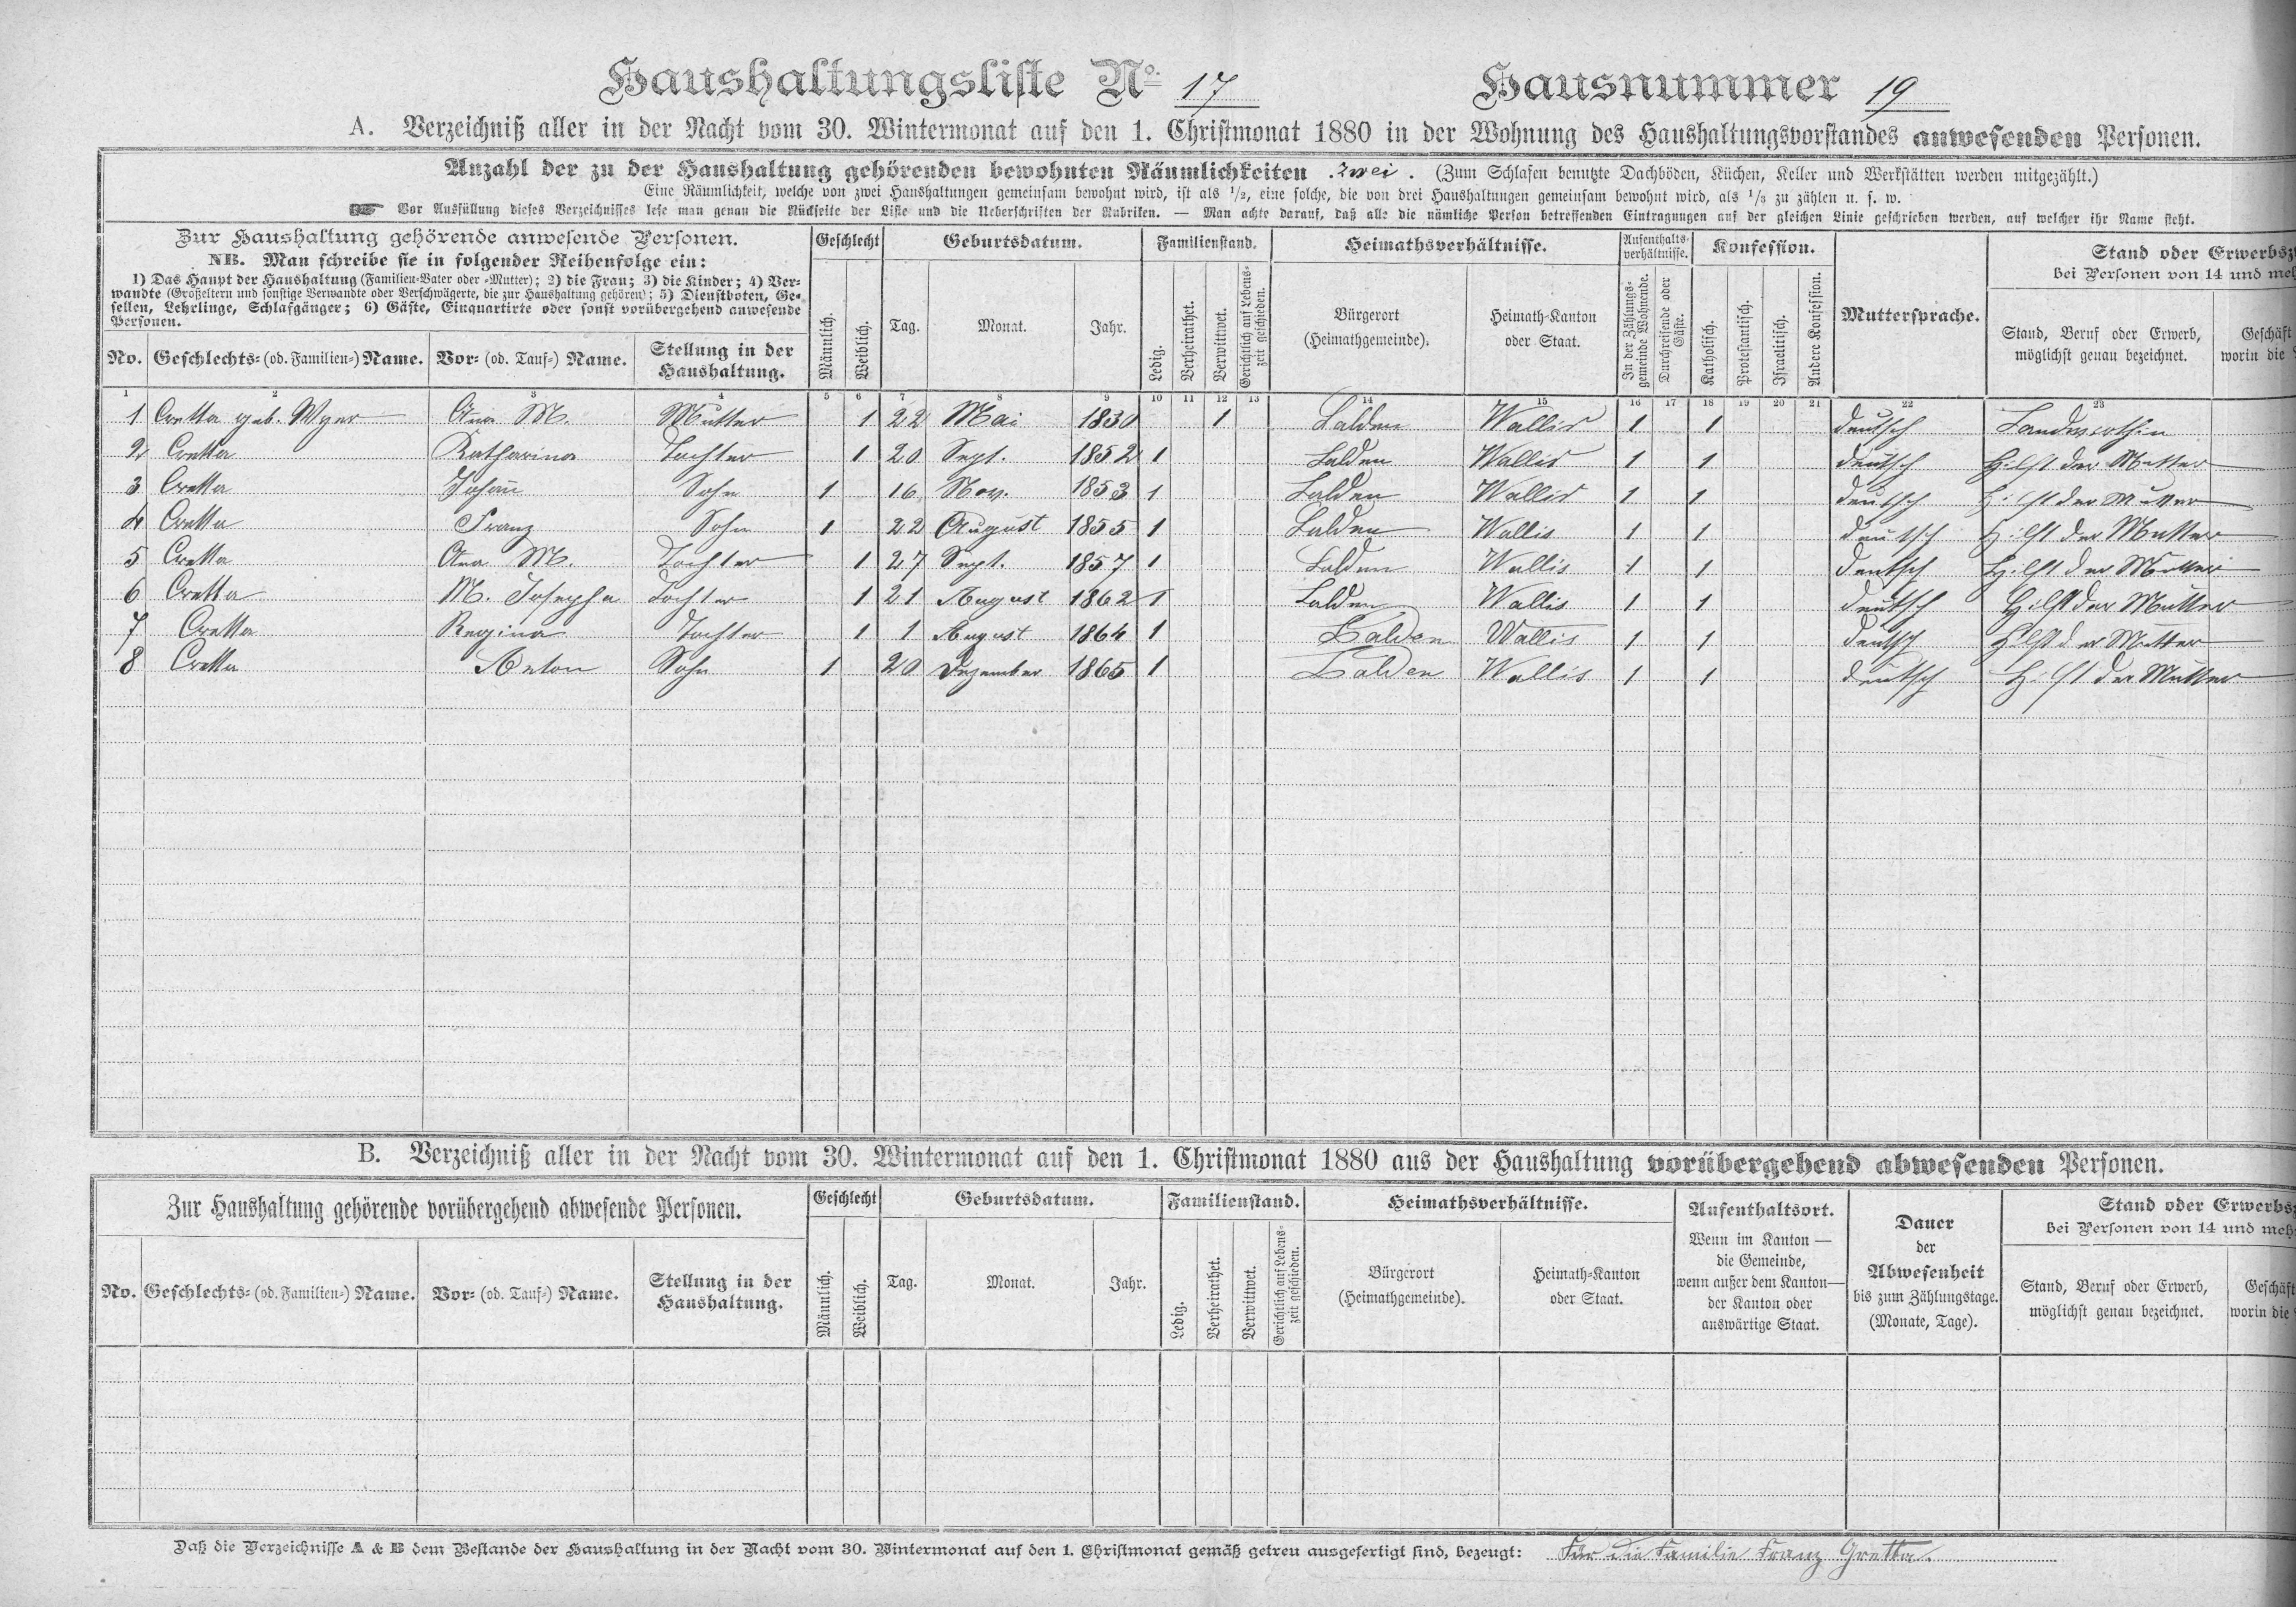 Haushaltungsliste No. 17 Hausnummer 19
A. Verzeichniß aller in der Nacht vom 30. Wintermonat auf den 1. Christmonat 1880 in der Wohnung des Haushaltungsvorstandes anwesenden Personen.
Anzahl der zu der Haushaltung gehörenden bewohnten Räumlichkeiten zwei. (Zum Schlafen benutzte Dachböden, Küchen, Keller und Werkstätten werden mitgezählt.)
Eine Räumlichkeit, welche von zwei Haushaltungen gemeinsam bewohnt wird, ist als 1/2, eine solche, die von drei Haushaltungen gemeinsam bewohnt wird, als 1/3 zu zählen u. s. w.
☛ Vor Ausfüllung dieses Verzeichnisses lese man genau die Rückseite der Liste und die Ueberschriften der Rubriken. — Man achte darauf, daß alle die nämliche Person betreffenden Eintragungen auf der gleichen Linie geschrieben werden, auf welcher ihr Name steht.
Zur Haushaltung gehörende anwesende Personen.
NB. Man schreibe sie in folgender Reihenfolge ein:
1) Das Haupt der Haushaltung (Familien-Vater oder -Mutter); 2) die Frau; 3) die Kinder; 4) Ver-
wandte (Großeltern und sonstige Verwandte oder Verschwägerte, die zur Haushaltung gehören); 5) Dienstboten, Ge-
sellen, Lehrlinge, Schlafgänger; 6) Gäste, Einquartirte oder sonst vorübergehend anwesende
Personen.
No. Geschlechts- (od. Familien-) Name. Vor- (od. Tauf-) Name. Stellung in der
Haushaltung.
Geschlecht
Männlich. Weiblich.
Geburtsdatum.
Tag. Monat. Jahr.
Familienstand.
Ledig. Verheirathet. Verwittwet. Gerichtlich auf Lebens-
zeit geschieden.
Heimathsverhältnisse.
Bürgerort
(Heimathgemeinde).
Heimath-Kanton
oder Staat.
Aufenthalts-
verhältnisse.
In der Zählungs-
gemeinde Wohnende.
Durchreisende oder
Gäste.
Konfession.
Katholisch. Protestantisch. Israelitisch. Andere Konfession.
Muttersprache.
Stand oder Erwerbsz
bei Personen von 14 und meh
Stand, Beruf oder Erwerb,
möglichst genau bezeichnet.
Geschäft
worin die
1 2 3 4 5 6 7 8 9 10 11 12 13 14 15 16 17 18 19 20 21 22 23
1 Cretta geb. Wyer Ana M. Mutter 1 22 Mai 1830 1 Lalden Wallis 1 1 deutsch Landwirthin
2 Cretta Katharina Tochter 1 20 Sept. 1852 1 Lalden Wallis 1 1 deutsch Hilft der Mutter
3 Cretta Johan̄ Sohn 1 16 Nov. 1853 1 Lalden Wallis 1 1 deutsch Hilft der Mutter
4 Cretta Franz Sohn 1 22 August 1855 1 Lalden Wallis 1 1 deutsch Hilft der Mutter
5 Cretta Ana M. Tochter 1 27 Sept. 1857 1 Lalden Wallis 1 1 deutsch Hilft der Mutter
6 Cretta M. Josepha Tochter 1 21 August 1862 1 Lalden Wallis 1 1 deutsch Hilft der Mutter
7 Cretta Regina Tochter 1 1 August 1864 1 Lalden Wallis 1 1 deutsch Hilft der Mutter
8 Cretta Anton Sohn 1 20 Dezember 1865 1 Lalden Wallis 1 1 deutsch Hilft der Mutter
B. Verzeichniß aller in der Nacht vom 30. Wintermonat auf den 1. Christmonat 1880 aus der Haushaltung vorübergehend abwesenden Personen.
Zur Haushaltung gehörende vorübergehend abwesende Personen.
No. Geschlechts- (od. Familien-) Name. Vor- (od. Tauf-) Name. Stellung in der
Haushaltung.
Geschlecht
Männlich. Weiblich.
Geburtsdatum.
Tag. Monat. Jahr.
Familienstand.
Ledig. Verheirathet. Verwittwet. Gerichtlich auf Lebens-
zeit geschieden.
Heimathsverhältnisse.
Bürgerort
(Heimathgemeinde).
Heimath-Kanton
oder Staat.
Aufenthaltsort.
Wenn im Kanton —
die Gemeinde,
wenn außer dem Kanton—
der Kanton oder
auswärtige Staat.
Dauer
der
Abwesenheit
bis zum Zählungstage.
(Monate, Tage).
Stand oder Erwerbsz
bei Personen von 14 und meh
Stand, Beruf oder Erwerb,
möglichst genau bezeichnet.
Geschäft
worin die
Daß die Verzeichnisse A & B dem Bestande der Haushaltung in der Nacht vom 30. Wintermonat auf den 1. Christmonat gemäß getreu ausgefertigt sind, bezeugt: Für die Familie Franz Gretta.